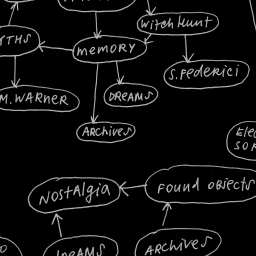 WITCH HUNT
MEMORY
S. FEDERICI
M. WARNER
DREAMS
ARCHIVES
NOSTALGIA
FOUND OBJECTS
ARCHIVES